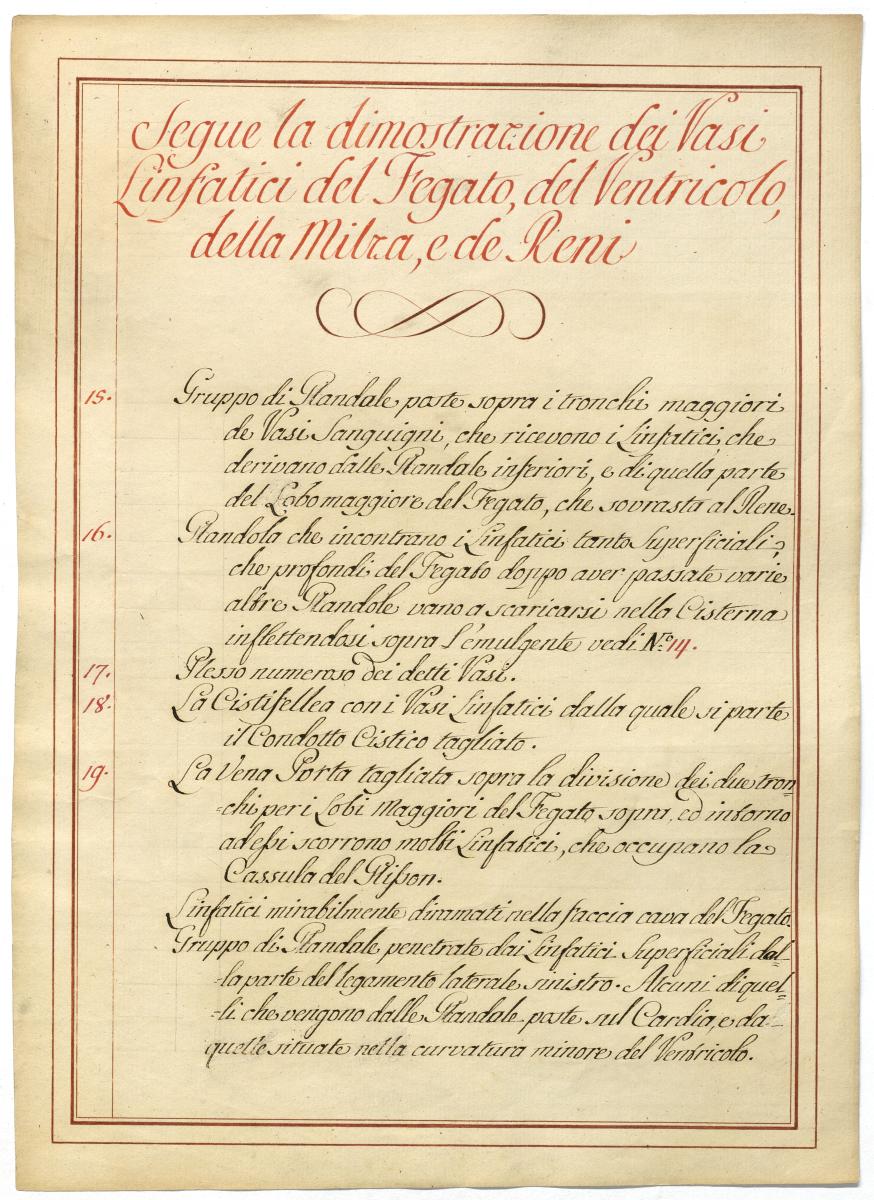 Segue la dimostrazione dei Vasi
Linfatici del Fegato, del Ventricolo,
della Milza, e de Reni
15. Gruppo di Glandale poste sopra i tronchi maggiori
de Vasi Sanguigni, che ricevono i Linfatici, che
derivano dalle Glandale inferiori, e di quella parte
del Lobo maggiore del Fegato, che sovrasta al Rene.
16. Glandola che incontrano i Linfatici tanto Superficiali,
che profondi del Fegato doppo aver passate varie
altre Glandole vano a scaricarsi nella Cisterna
inflettendosi sopra l'emulgente vedi Nº. 14.
17. Plesso numeroso dei detti Vasi.
18. La Cistifellea con i Vasi Linfatici dalla quale si parte
il Condotto Cistico tagliato.
19. La Vena Porta tagliata sopra la divisione dei due tron=
=chi per i Lobi Maggiori del Fegato sopra, ed intorno
ad eßi scorrono molti Linfatici, che occupano la
Cassula del Glißon.
Linfatici mirabilmente diramati nella faccia cava del Fegato.
Gruppo di Glandale penetrate dai Linfatici Superficiali dal=
=la parte del legamento laterale sinistro. Alcuni di quel=
=li che vengono dalle Glandale poste sul Cardia, e da
quelle situate nella curvatura minore del Ventricolo.